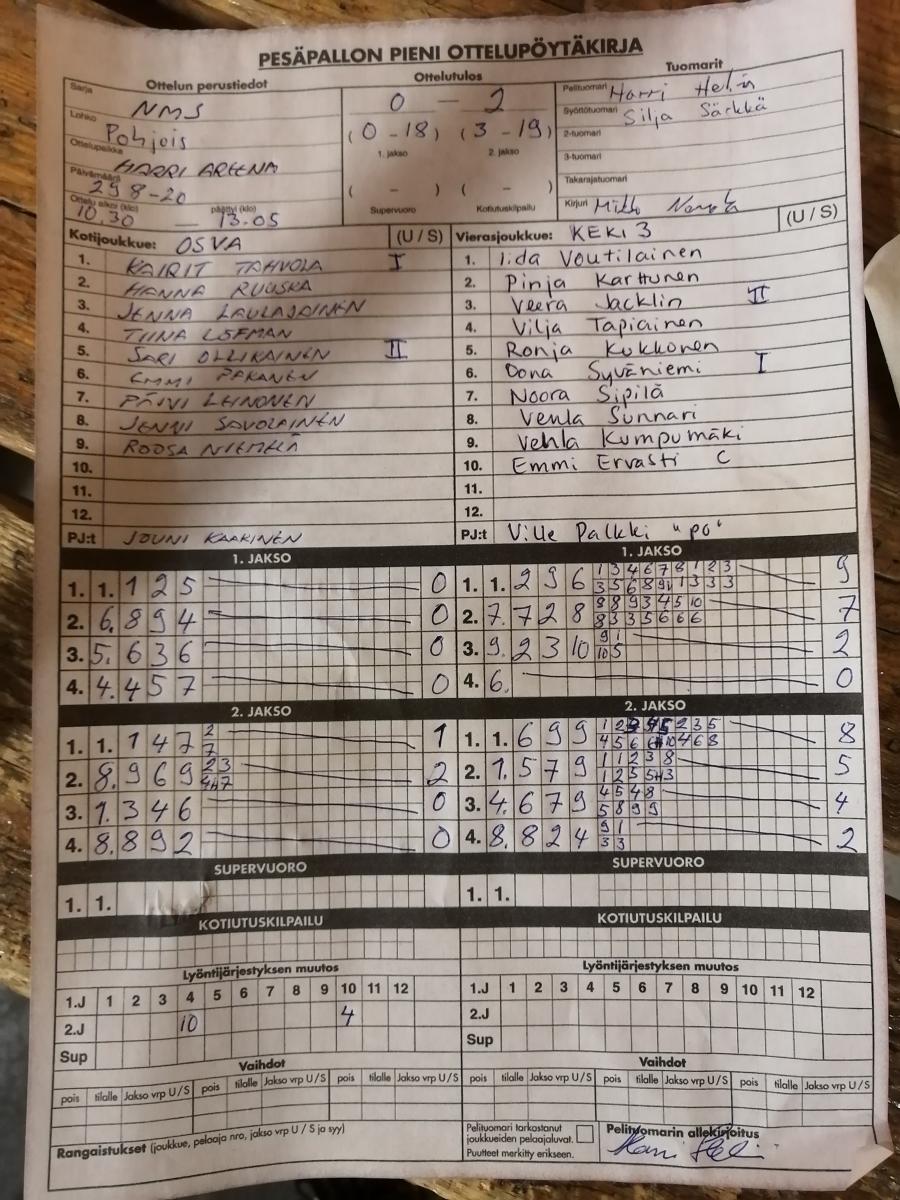 PESÄPALLON PIENI OTTELUPÖYTÄKIRJA
Ottelun perustiedot Ottelutulos Tuomarit
Sarja NMS
Lohko Pohjois
Ottelupaikka HARRI AREENA
Päivämäärä 29 8-20
Ottelu alkoi (klo) 10.30 — päättyi (klo) 13.05
0 — 2
(0 - 18) (3 - 19)
1. jakso 2. jakso
( - ) ( - )
Supervuoro Kotiutuskilpailu
Pelituomari Harri Helin
Syöttötuomari Silja Särkkä
2-tuomari
3-tuomari
Takarajatuomari
Kirjuri
Kotijoukkue: OSVA (U / S)
1. KAIRIT TAHVOLA I
2. HANNA RUUSKA
3. JENNA LAULAJAINEN
4. TIINA LÖFMAN
5. SARI OLLIKAINEN II
6. EMMI PAKANEN
7. PÄIVI LEINONEN
8. JENNI SAVOLAINEN
9. ROOSA NIEMELÄ
10.
11.
12.
PJ:t JOUNI KAAKINEN
Vierasjoukkue: KEKI 3 (U / S)
1. Iida Voutilainen
2. Pinja Karttunen
3. Veera Jacklin II
4. Vilja Tapiainen
5. Ronja Kukkonen
6. Oona Syväniemi I
7. Noora Sipilä
8. Venla Sunnari
9. Vehla Kumpumäki
10. Emmi Ervasti C
11.
12.
PJ:t Ville Palkki "po"
1. JAKSO
1. 1. 1 2 5 0
2. 6. 8 9 4 0
3. 5. 6 3 6 0
4. 4. 4 5 7 0
1. JAKSO
1. 1. 2 9 6 9
2. 7. 7 2 8 8 8 9 3 4 5 10 7
8 3 3 5 6 6 6
3. 9. 2 3 10 9 1 2
10 5
4. 6. 0
2. JAKSO
1. 1. 1 4 7 2 1
7
2. 8. 9 6 9 2 3 2
3. 1. 3 4 6 0
4. 8. 8 9 2 0
2. JAKSO
1. 1. 6 9 9 8
2. 1. 5 7 9 1 1 2 3 8 5
3. 4. 6 7 9 4 5 4 8 4
5 8 9 9
4. 8. 8 2 4 9 1 2
3 3
SUPERVUORO SUPERVUORO
1. 1. 1. 1.
KOTIUTUSKILPAILU KOTIUTUSKILPAILU
Lyöntijärjestyksen muutos Lyöntijärjestyksen muutos
1.J 1 2 3 4 5 6 7 8 9 10 11 12 1.J 1 2 3 4 5 6 7 8 9 10 11 12
2.J 10 4 2.J
Sup Sup
Vaihdot Vaihdot
pois tilalle Jakso vrp U / S pois tilalle Jakso vrp U / S pois tilalle Jakso vrp U / S pois tilalle Jakso vrp U / S pois tilalle Jakso vrp U / S pois tilalle Jakso vrp U / S
Rangaistukset (joukkue, pelaaja nro, jakso vrp U / S ja syy)
Pelituomari tarkastanut
joukkueiden pelaajaluvat.
Puutteet merkitty erikseen.
Pelituomarin allekirjoitus